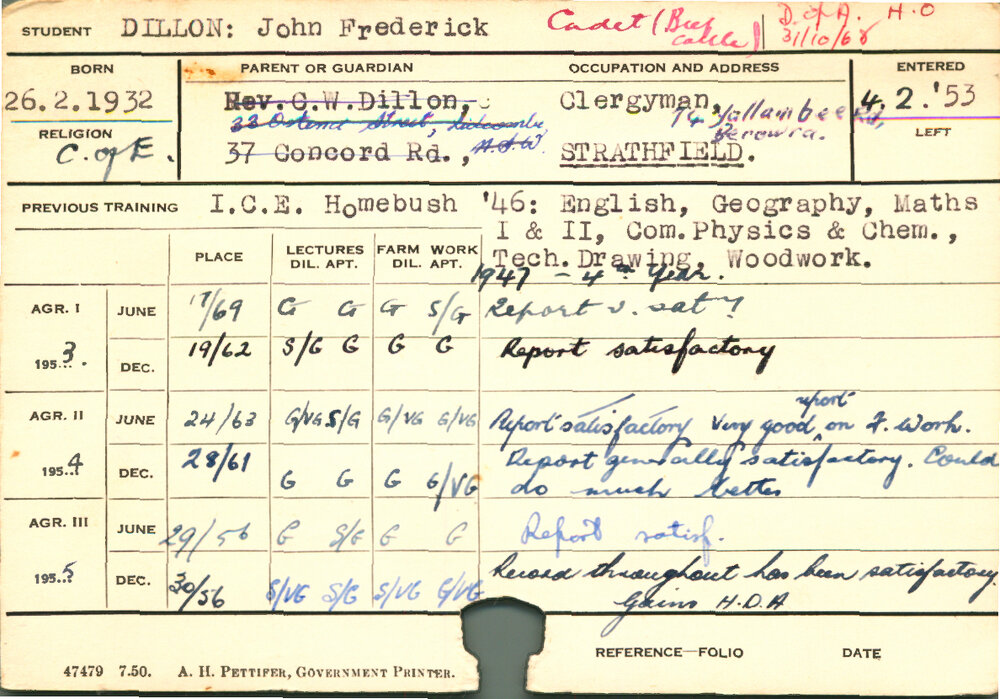 STUDENT DILLON: John Frederick Cadet (Beef Cattle) D. of A. H.O 31/10/68
BORN PARENT OR GUARDIAN OCCUPATION AND ADDRESS ENTERED
26.2.1932 Rev. C.W. Dillon, Clergyman, 4.2.'53
33 Ostend Street, Lidcombe, N.S.W. 74 Yallambee Rd, Berowra.
RELIGION LEFT
C. of E. 37 Concord Rd., STRATHFIELD.
PREVIOUS TRAINING I.C.E. Homebush '46: English, Geography, Maths
I & II, Com.Physics & Chem.,
Tech.Drawing, Woodwork.
1947 - 4th Year.
PLACE LECTURES DIL. APT. FARM WORK DIL. APT.
AGR. I JUNE 17/69 G G G S/G Report v. sat'y
1953. DEC. 19/62 S/G G G G Report satisfactory
AGR. II JUNE 24/63 G/VG S/G G/VG G/VG Report satisfactory Very good report on F. Work.
1954 DEC. 28/61 G G G G/VG Report generally satisfactory. Could
do much better
AGR. III JUNE 29/56 G S/G G G Report satisf.
1955 DEC. 30/56 S/VG S/G S/VG G/VG Record throughout has been satisfactory.
Gains H.D.A
REFERENCE-FOLIO DATE
47479 7.50. A. H. PETTIFER, GOVERNMENT PRINTER.